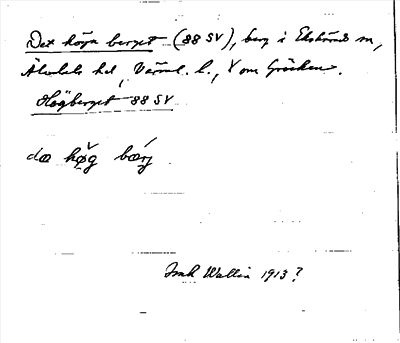 Det höga berget (88 SV), berg i Ekshärad sn,
Älvdals hd, Värml. l., V om Gräcken.
Högberget 88 SV
dæ høg bærj
Wallin 1913?